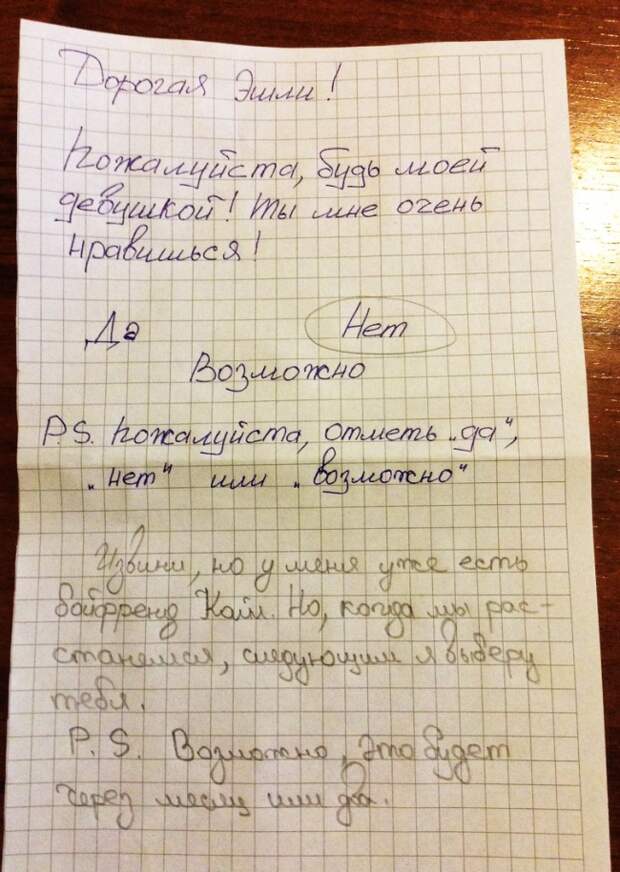 Дорогая Эшли!
Пожалуйста, будь моей
девушкой! Ты мне очень
нравишься!
Да Нет
Возможно
P.S. Пожалуйста, отметь „да“,
„нет“ или „возможно“
Извини, но у меня уже есть
бойфренд Кайл. Но, когда мы рас-
станемся, следующим я выберу
тебя.
P.S. Возможно, это будет
через месяц или два.